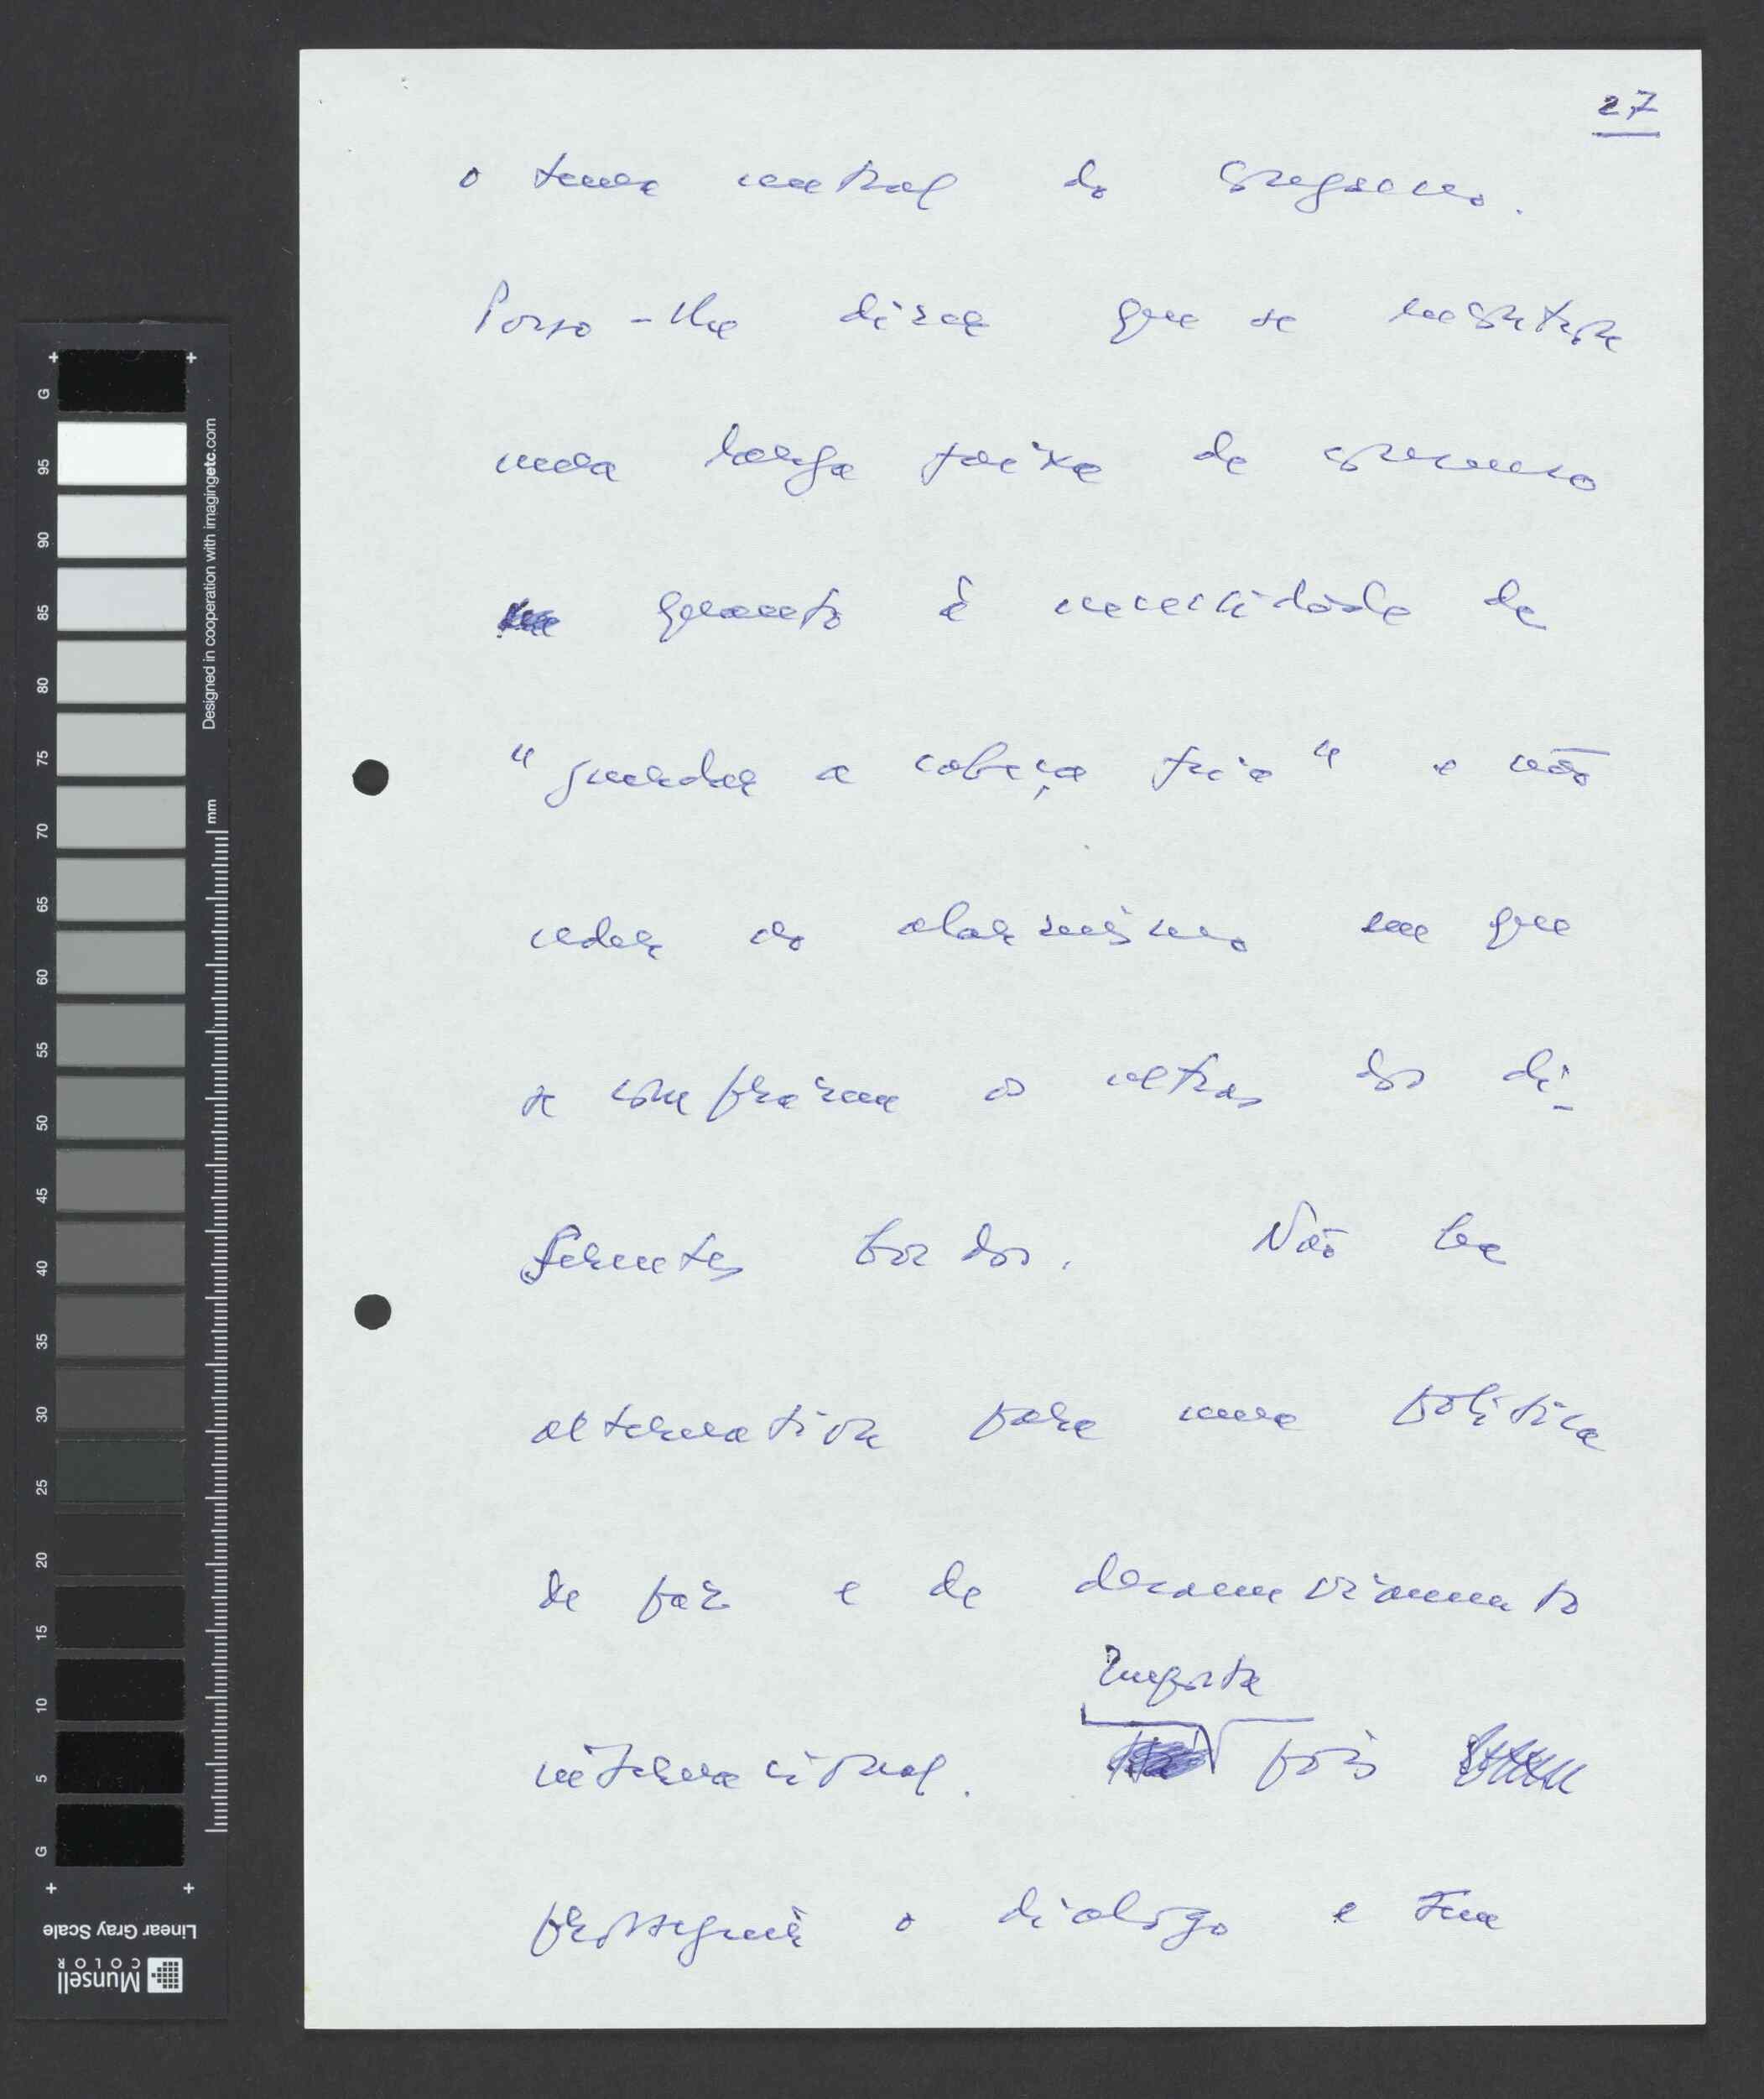 27
o tema central do Congresso.
Posso-lhe dizer que se registou
uma larga faixa de consenso
quanto à necessidade de
"guardar a cabeça fria" e não
ceder ao alarmismo em que
se comprazem os ultras dos di-
ferentes bordos. Não ha
alternativa para uma política
de paz e de desanuviamento
Importa
internacional. pois
prosseguir o dialogo e
G
95
90
85
80
75
70
65
60
55
50
45
40
35
30
25
20
15
10
5
G
Designed in cooperation with imagingetc.com
mm
Linear Gray Scale
Munsell
COLOR